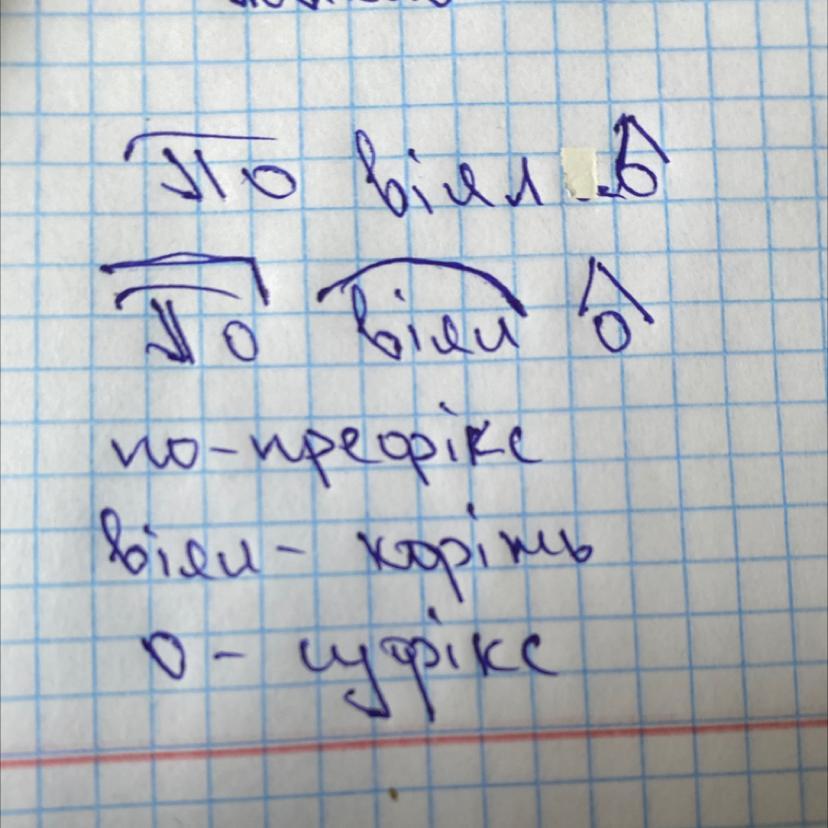 по віял о
по віял о
по - префікс
віял - корінь
о - суфікс